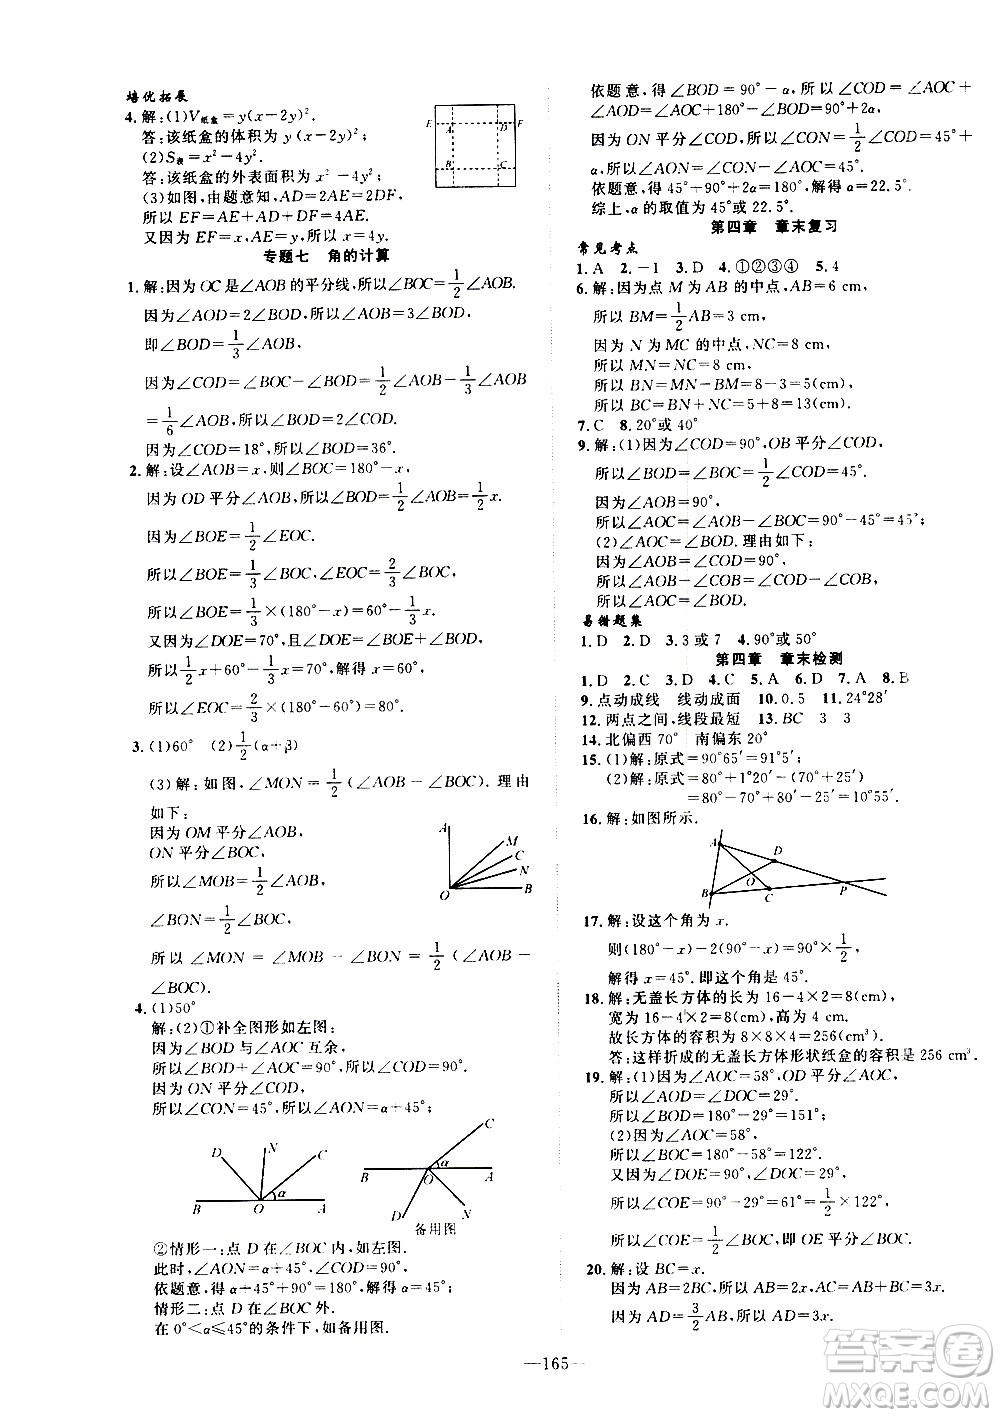 培优拓展
4.解:(1)V纸盒=y(x-2y)².
答:该纸盒的体积为y(x-2y)²;
(2)S表=x²-4y².
答:该纸盒的外表面积为x²-4y²;
(3)如图,由题意知,AD=2AE=2DF,
所以EF=AE+AD+DF=4AE.
又因为EF=x,AE=y,所以x=4y.
E A D F
B C
专题七 角的计算
1.解:因为OC是∠AOB的平分线,所以∠BOC=1/2∠AOB.
因为∠AOD=2∠BOD,所以∠AOB=3∠BOD,
即∠BOD=1/3∠AOB,
因为∠COD=∠BOC-∠BOD=1/2∠AOB-1/3∠AOB
=1/6∠AOB,所以∠AOB=2∠COD.
因为∠COD=18°,所以∠AOB=108°.
2.解:设∠AOB=x,则∠BOC=180°-x,
因为OD平分∠AOB,所以∠BOD=1/2∠AOB=1/2x.
因为∠BOE=1/2∠EOC.
所以∠BOE=1/3∠BOC,∠EOC=2/3∠BOC,
所以∠BOE=1/3×(180°-x)=60°-1/3x.
又因为∠DOE=70°,且∠DOE=∠BOD+∠BOE,
所以1/2x+60°-1/3x=70°,解得x=60°.
所以∠EOC=2/3×(180°-60°)=80°.
3.(1)60° (2)1/2(α+β)
(3)解:如图,∠MON=1/2(∠AOB-∠BOC).理由
如下:
因为OM平分∠AOB,
ON平分∠BOC,
所以∠MOB=1/2∠AOB,
∠BON=1/2∠BOC,
A M C N O B
所以∠MON=∠MOB-∠BON=1/2(∠AOB-
∠BOC).
4.(1)50°
解:(2)①补全图形如左图:
因为∠BOD与∠AOC互余,
所以∠BOD+∠AOC=90°,所以∠COD=90°.
因为ON平分∠COD,
所以∠CON=45°,所以∠AON=α+45°;
D N C α B O A
C α B O A D N
备用图
②情形一:点D在∠BOC内,如左图.
此时,∠AON=α+45°,∠BOD=90°,
依题意,得α+45°+90°=180°,解得α=45°.
情形二:点D在∠BOC外.
在0°<α≤45°的条件下,如备用图.
依题意,得∠BOD=90°-α,所以∠COD=∠AOC+
∠AOD=∠AOC+180°-∠BOD=90°+2α,
因为ON平分∠COD,所以∠CON=1/2∠COD=45°+
α,所以∠AON=∠CON-∠AOC=45°.
依题意45°+90°+2α=180°,解得α=22.5°.
综上,α的取值为45°或22.5°.
第四章 章末复习
常见考点
1.A 2.-1 3.D 4.①②③④ 5.4
6.解:因为点M为AB的中点,AB=6 cm,
所以BM=1/2AB=3 cm,
因为N为MC的中点,NC=8 cm,
所以MN=NC=8 cm,
所以BN=MN-BM=8-3=5(cm),
所以BC=BN+NC=5+8=13(cm).
7.C 8.20°或40°
9.解:(1)因为∠COD=90°,OB平分∠COD,
所以∠BOC=∠BOD=1/2∠COD=45°.
因为∠AOB=90°,
所以∠AOC=∠AOB-∠BOC=90°-45°=45°;
(2)∠AOC=∠BOD.理由如下:
因为∠AOB=∠COD=90°,
所以∠AOB-∠COB=∠COD-∠COB,
所以∠AOC=∠BOD.
易错题集
1.D 2.D 3.3或7 4.90°或50°
第四章 章末检测
1.D 2.C 3.D 4.C 5.A 6.D 7.A 8.B
9.点动成线 线动成面 10.0.5 11.24°28′
12.两点之间,线段最短 13.BC 3 3
14.北偏西70° 南偏东20°
15.(1)解:原式=90°65′=91°5′;
(2)解:原式=80°+1°20′-(70°+25′)
=80°-70°+80′-25′=10°55′.
16.解:如图所示.
A D O B C P
17.解:设这个角为x.
则(180°-x)-2(90°-x)=90°×1/2,
解得x=45°.即这个角是45°.
18.解:无盖长方体的长为16-4×2=8(cm),
宽为16-4×2=8(cm),
故长方体的容积为8×8×4=256(cm³).
答:这样折成的无盖长方体形状纸盒的容积是256 cm³.
19.解:(1)因为∠AOC=58°,OD平分∠AOC,
所以∠AOD=∠DOC=29°.
所以∠BOD=180°-29°=151°;
(2)因为∠AOC=58°,
所以∠BOC=180°-58°=122°.
又因为∠DOE=90°,∠DOC=29°,
所以∠COE=90°-29°=61°=1/2×122°.
所以∠COE=1/2∠BOC,即OE平分∠BOC.
20.解:设BC=x.
因为AB=2BC,所以AB=2x,AC=AB+BC=3x.
因为AD=3/2AB,所以AD=3x.
—165—
答案圈
MXQE.COM